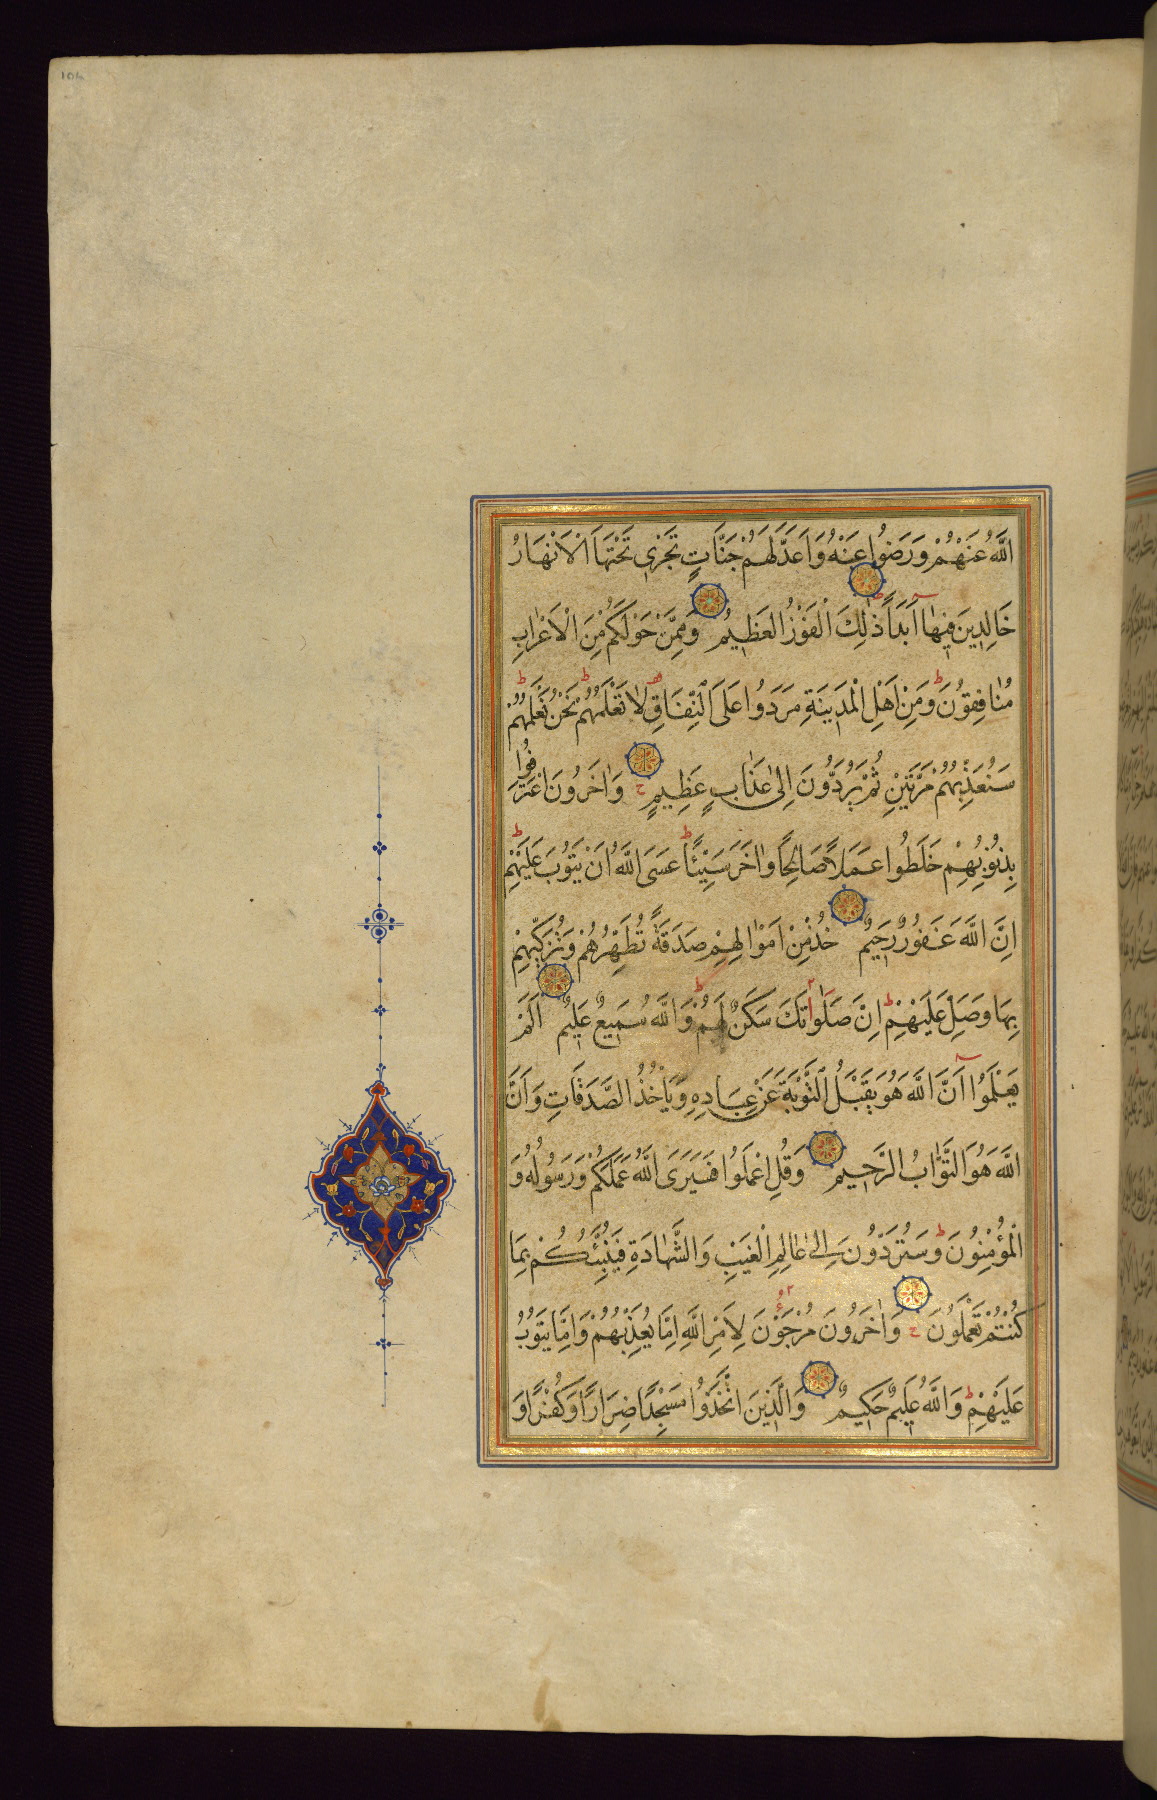 اللَّهُ عَنْهُمْ وَرَضُوا عَنْهُ وَاَعَدَّ لَهُمْ جَنَّاتٍ تَجْرٖى تَحْتَهَا الْاَنْهَارُ
خَالِدٖينَ فٖيهَا اَبَدًا ذٰلِكَ الْفَوْزُ الْعَظٖيمُ وَمِمَّنْ حَوْلَكُمْ مِنَ الْاَعْرَابِ
مُنَافِقُونَ ط وَمِنْ اَهْلِ الْمَدٖينَةِ مَرَدُوا عَلَى النِّفَاقِ لَا تَعْلَمُهُمْ ط نَحْنُ نَعْلَمُهُمْ ط
سَنُعَذِّبُهُمْ مَرَّتَيْنِ ثُمَّ يُرَدُّونَ اِلٰى عَذَابٍ عَظٖيمٍ ج وَاٰخَرُونَ اعْتَرَفُوا
بِذُنُوبِهِمْ خَلَطُوا عَمَلًا صَالِحًا وَاٰخَرَ سَيِّئًا ط عَسَى اللَّهُ اَنْ يَتُوبَ عَلَيْهِمْ ط
اِنَّ اللَّهَ غَفُورٌ رَحٖيمٌ خُذْ مِنْ اَمْوَالِهِمْ صَدَقَةً تُطَهِّرُهُمْ وَتُزَكّٖيهِمْ
بِهَا وَصَلِّ عَلَيْهِمْ ط اِنَّ صَلَوَاتَكَ سَكَنٌ لَهُمْ ط وَاللَّهُ سَمٖيعٌ عَلٖيمٌ اَلَمْ
يَعْلَمُوا اَنَّ اللَّهَ هُوَ يَقْبَلُ التَّوْبَةَ عَنْ عِبَادِهٖ وَيَأْخُذُ الصَّدَقَاتِ وَاَنَّ
اللَّهَ هُوَ التَّوَّابُ الرَّحٖيمُ وَقُلِ اعْمَلُوا فَسَيَرَى اللَّهُ عَمَلَكُمْ وَرَسُولُهُ وَ
الْمُؤْمِنُونَ ط وَسَتُرَدُّونَ اِلٰى عَالِمِ الْغَيْبِ وَالشَّهَادَةِ فَيُنَبِّئُكُمْ بِمَا
كُنْتُمْ تَعْمَلُونَ ج وَاٰخَرُونَ مُرْجَوْنَ لِاَمْرِ اللَّهِ اِمَّا يُعَذِّبُهُمْ وَاِمَّا يَتُوبُ
عَلَيْهِمْ ط وَاللَّهُ عَلٖيمٌ حَكٖيمٌ وَالَّذٖينَ اتَّخَذُوا مَسْجِدًا ضِرَارًا وَكُفْرًا وَ